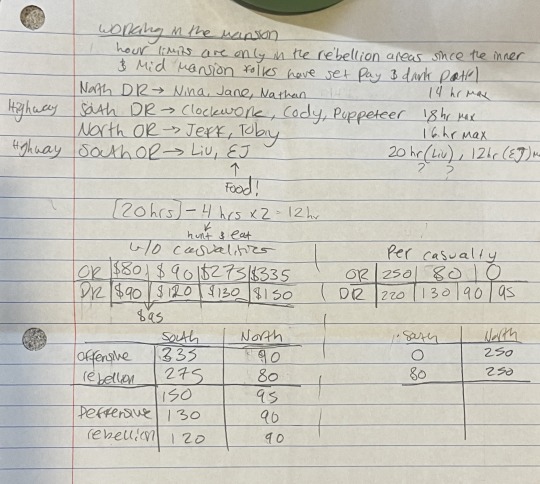 working in the mansion
hour limits are only in the rebellion areas since the inner
& Mid Mansion folks have set pay & don't patrol
North DR → Nina, Jane, Nathan 14 hr max
Highway South DR → Clockwork, Cody, Puppeteer 18 hr max
North OR → Jeff, Toby 16 hr max
Highway South OR → Liu, EJ 20 hr (Liu), 12 hr (EJ)
? ?
↑
Food!
[20 hrs] - 4 hrs x 2 = 12 hr
hunt & eat
w/o casualties Per casualty
OR $80 $90 $275 $335 OR 250 80 0
DR $90 $120 $130 $150 DR 220 130 90 95
$95
South North South North
offensive 335 90 0 250
rebellion 275 80 80 250
150 95
Deffensive 130 90
rebellion 120 90